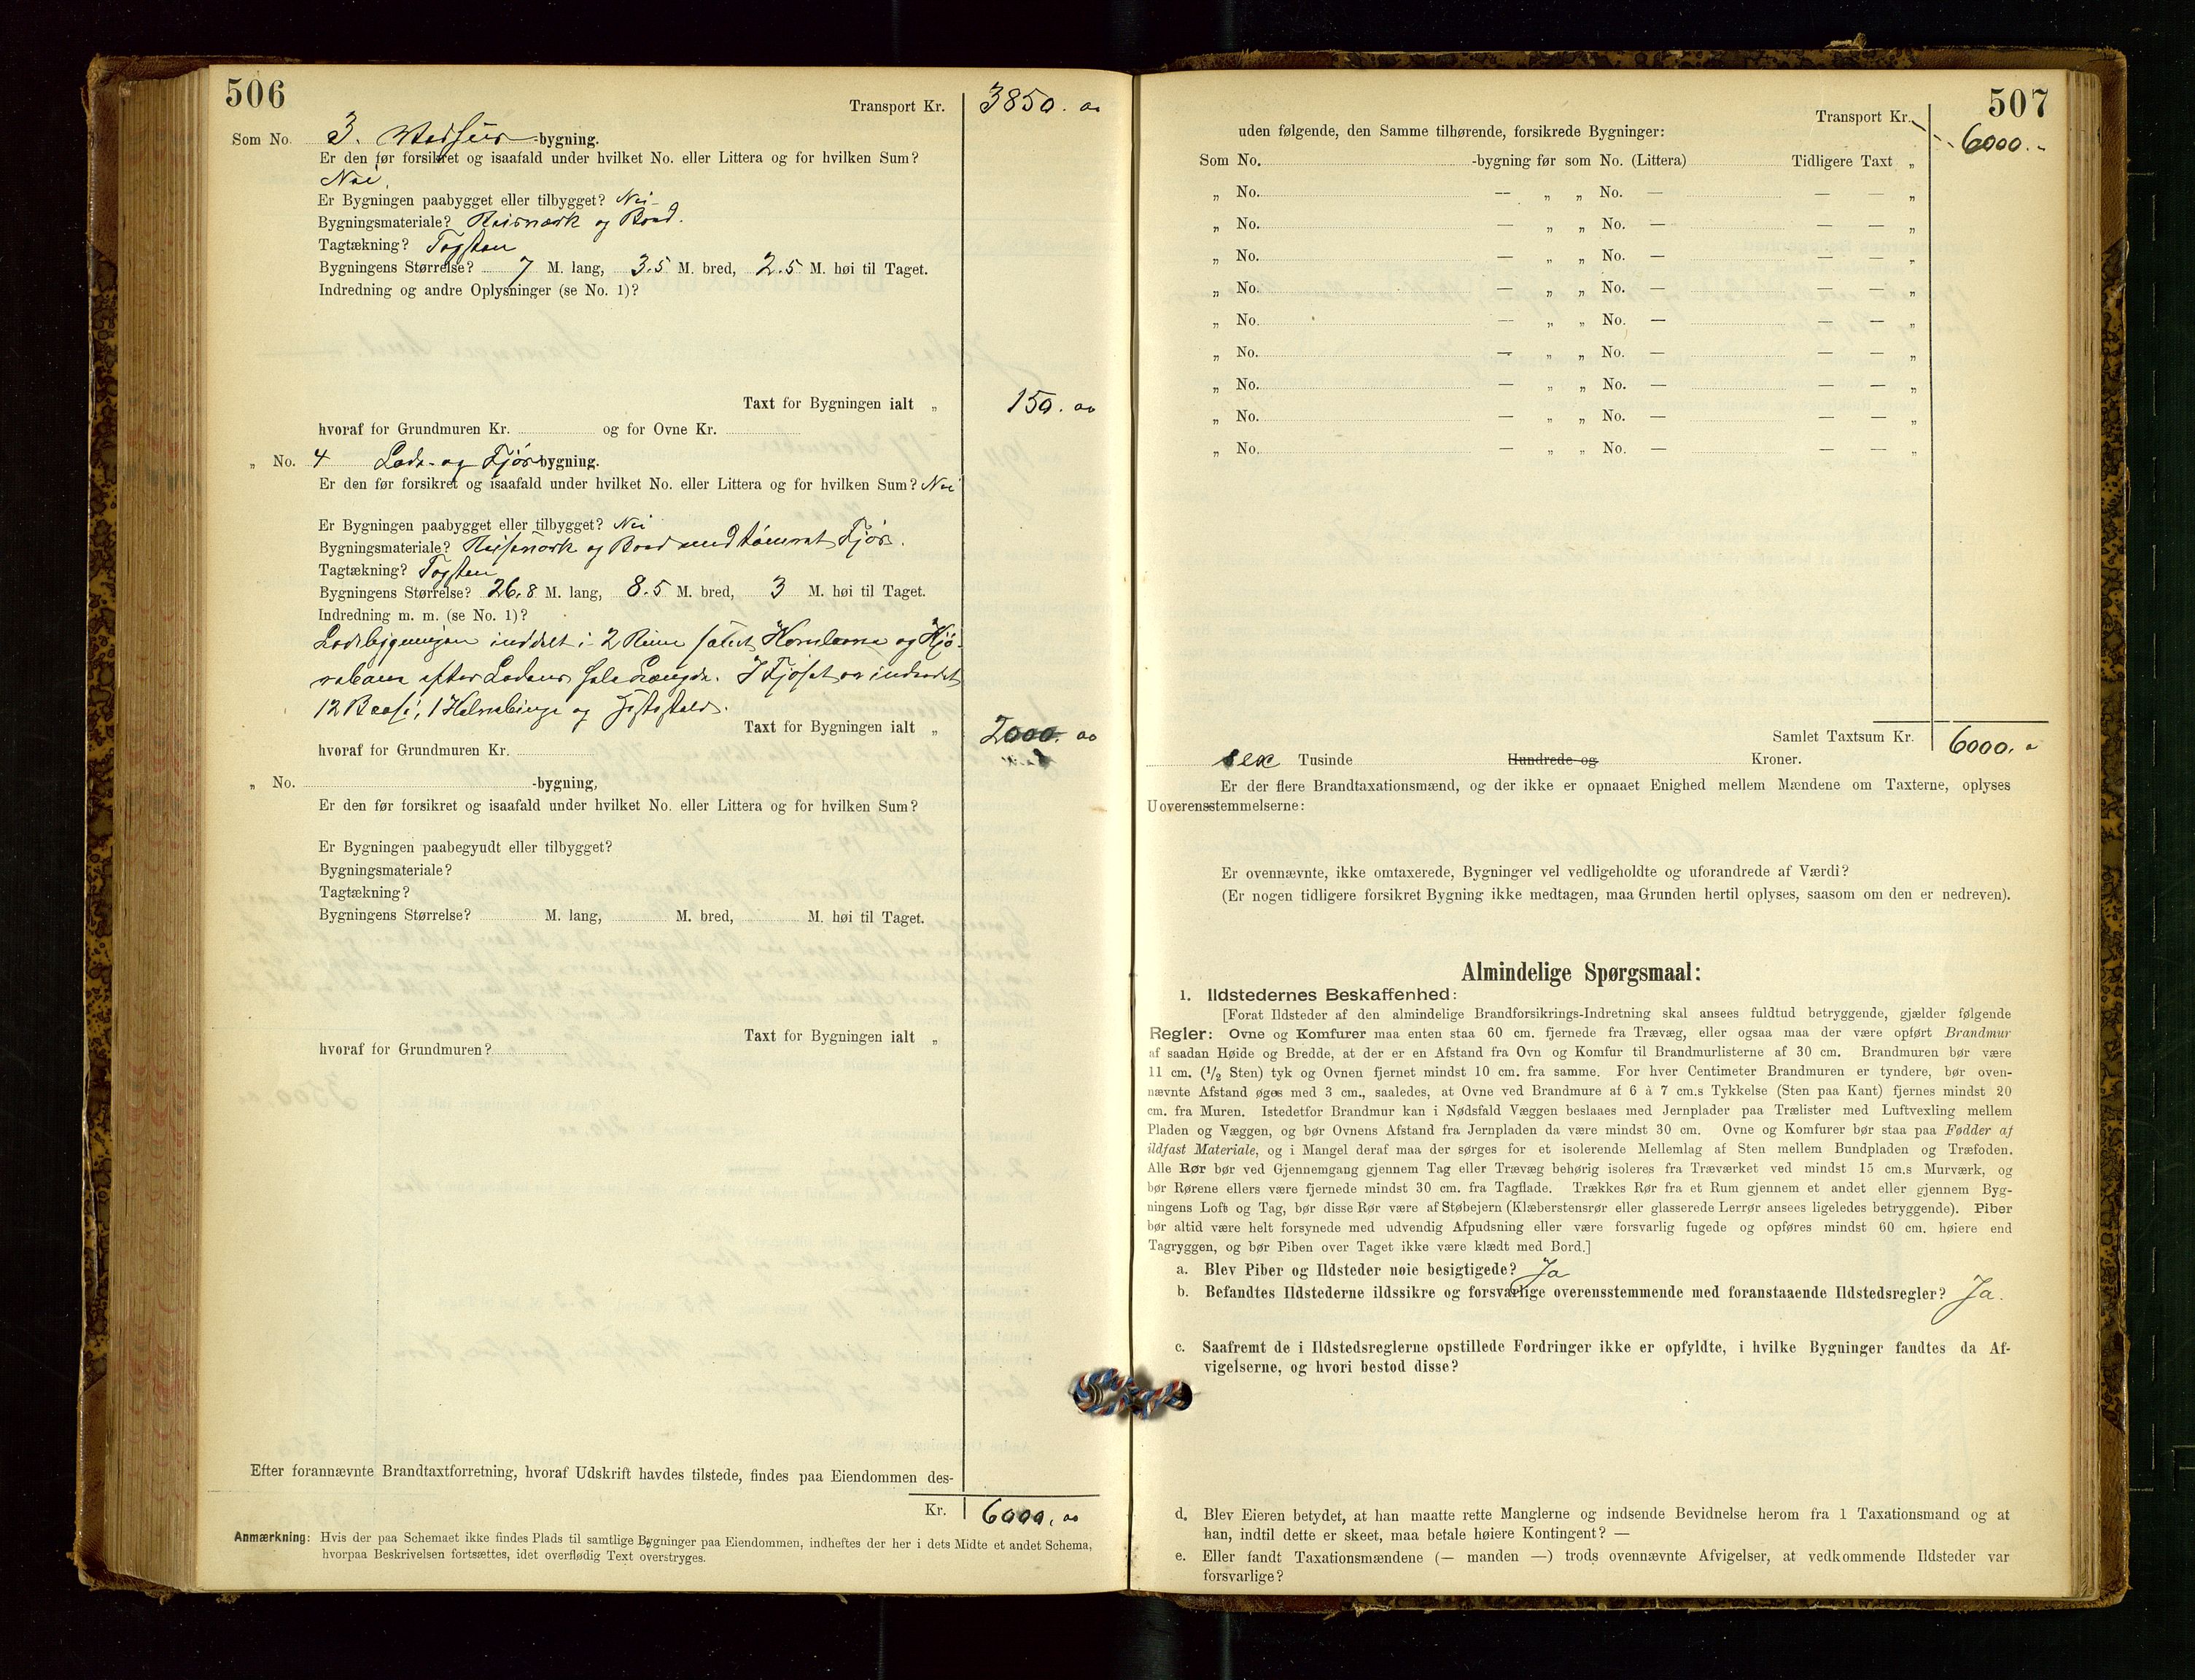 506
Transport Kr. 3850. oo
Som No. 3. Vedskur-bygning.
Er den før forsikret og isaafald under hvilket No. eller Littera og for hvilken Sum?
Nei.
Er Bygningen paabygget eller tilbygget? Nei
Bygningsmateriale? Reisværk og Bord.
Tagtækning? Tagsten
Bygningens Størrelse? 7 M. lang, 3.5 M. bred, 2.5 M. høi til Taget.
Indredning og andre Oplysninger (se No. 1)?
Taxt for Bygningen ialt „ 150. oo
hvoraf for Grundmuren Kr. og for Ovne Kr.
„ No. 4 Lade- og Fjøsbygning.
Er den før forsikret og isaafald under hvilket No. eller Littera og for hvilken Sum? Nei
Er Bygningen paabygget eller tilbygget? Nei
Bygningsmateriale? Reisværk og Bord med tømret Fjøs.
Tagtækning? Tagsten
Bygningens Størrelse? 26.8 M. lang, 8.5 M. bred, 3 M. høi til Taget.
Indredning m. m. (se No. 1)?
Ladebygningen inddelt i 2 Rum samt Kornlaave og Kjø-
rebane efter Ladens hele Længde. I Fjøset er indredet
12 Baase, 1 og
Taxt for Bygningen ialt „ 2000. oo
hvoraf for Grundmuren Kr.
„ No. -bygning,
Er den før forsikret og isaafald under hvilket No. eller Littera og for hvilken Sum?
Er Bygningen paabegyudt eller tilbygget?
Bygningsmateriale?
Tagtækning?
Bygningens Størrelse? M. lang, M. bred, M. høi til Taget.
Taxt for Bygningen ialt „
hvoraf for Grundmuren?
Efter forannævnte Brandtaxtforretning, hvoraf Udskrift havdes tilstede, findes paa Eiendommen des-
Kr. 6000. oo
Anmærkning: Hvis der paa Schemaet ikke findes Plads til samtlige Bygninger paa Eiendommen, indheftes der her i dets Midte et andet Schema,
hvorpaa Beskrivelsen fortsættes, idet overflødig Text overstryges.
507
Transport Kr. 6000. „
uden følgende, den Samme tilhørende, forsikrede Bygninger:
Som No. -bygning før som No. (Littera) Tidligere Taxt „
„ No. — „ „ No. — — — „
„ No. — „ „ No. — — — „
„ No. — „ „ No. — — — „
„ No. — „ „ No. — — — „
„ No. — „ „ No. — — — „
„ No. — „ „ No. — — — „
„ No. — „ „ No. — — — „
„ No. — „ „ No. — — — „
„ No. — „ „ No. — — — „
Samlet Taxtsum Kr. 6000. o
sex Tusinde Hundrede og Kroner.
Er der flere Brandtaxationsmænd, og der ikke er opnaaet Enighed mellem Mændene om Taxterne, oplyses
Uoverensstemmelserne:
Er ovennævnte, ikke omtaxerede, Bygninger vel vedligeholdte og uforandrede af Værdi?
(Er nogen tidligere forsikret Bygning ikke medtagen, maa Grunden hertil oplyses, saasom om den er nedreven).
Almindelige Spørgsmaal:
1. Ildstedernes Beskaffenhed:
[Forat Ildsteder af den almindelige Brandforsikrings-Indretning skal ansees fuldtud betryggende, gjælder følgende
Regler: Ovne og Komfurer maa enten staa 60 cm. fjernede fra Trævæg, eller ogsaa maa der være opført Brandmur
af saadan Høide og Bredde, at der er en Afstand fra Ovn og Komfur til Brandmurlisterne af 30 cm. Brandmuren bør være
11 cm. (1/2 Sten) tyk og Ovnen fjernet mindst 10 cm. fra samme. For hver Centimeter Brandmuren er tyndere, bør oven-
nævnte Afstand øges med 3 cm., saaledes, at Ovne ved Brandmure af 6 à 7 cm.s Tykkelse (Sten paa Kant) fjernes mindst 20
cm. fra Muren. Istedetfor Brandmur kan i Nødsfald Væggen beslaaes med Jernplader paa Trælister med Luftvexling mellem
Pladen og Væggen, og bør Ovnens Afstand fra Jernpladen da være mindst 30 cm. Ovne og Komfurer bør staa paa Fødder af
ildfast Materiale, og i Mangel deraf maa der sørges for et isolerende Mellemlag af Sten mellem Bundpladen og Træfoden.
Alle Rør bør ved Gjennemgang gjennem Tag eller Trævæg behørig isoleres fra Træværket ved mindst 15 cm.s Murværk, og
bør Rørene ellers være fjernede mindst 30 cm. fra Tagflade. Trækkes Rør fra et Rum gjennem et andet eller gjennem Byg-
ningens Loft og Tag, bør disse Rør være af Støbejern (Klæberstensrør eller glasserede Lerrør ansees ligeledes betryggende). Piber
bør altid være helt forsynede med udvendig Afpudsning eller være forsvarlig fugede og opføres mindst 60 cm. høiere end
Tagryggen, og bør Piben over Taget ikke være klædt med Bord.]
a. Blev Piber og Ildsteder nøie besigtigede? Ja
b. Befandtes Ildstederne ildssikre og forsvarlige overensstemmende med foranstaaende Ildstedsregler? Ja.
c. Saafremt de i Ildstedsreglerne opstillede Fordringer ikke er opfyldte, i hvilke Bygninger fandtes da Af-
vigelserne, og hvori bestod disse?
d. Blev Eieren betydet, at han maatte rette Manglerne og indsende Bevidnelse herom fra 1 Taxationsmand og at
han, indtil dette er skeet, maa betale høiere Kontingent? —
e. Eller fandt Taxationsmændene (— manden —) trods ovennævnte Afvigelser, at vedkommende Ildsteder var
forsvarlige?